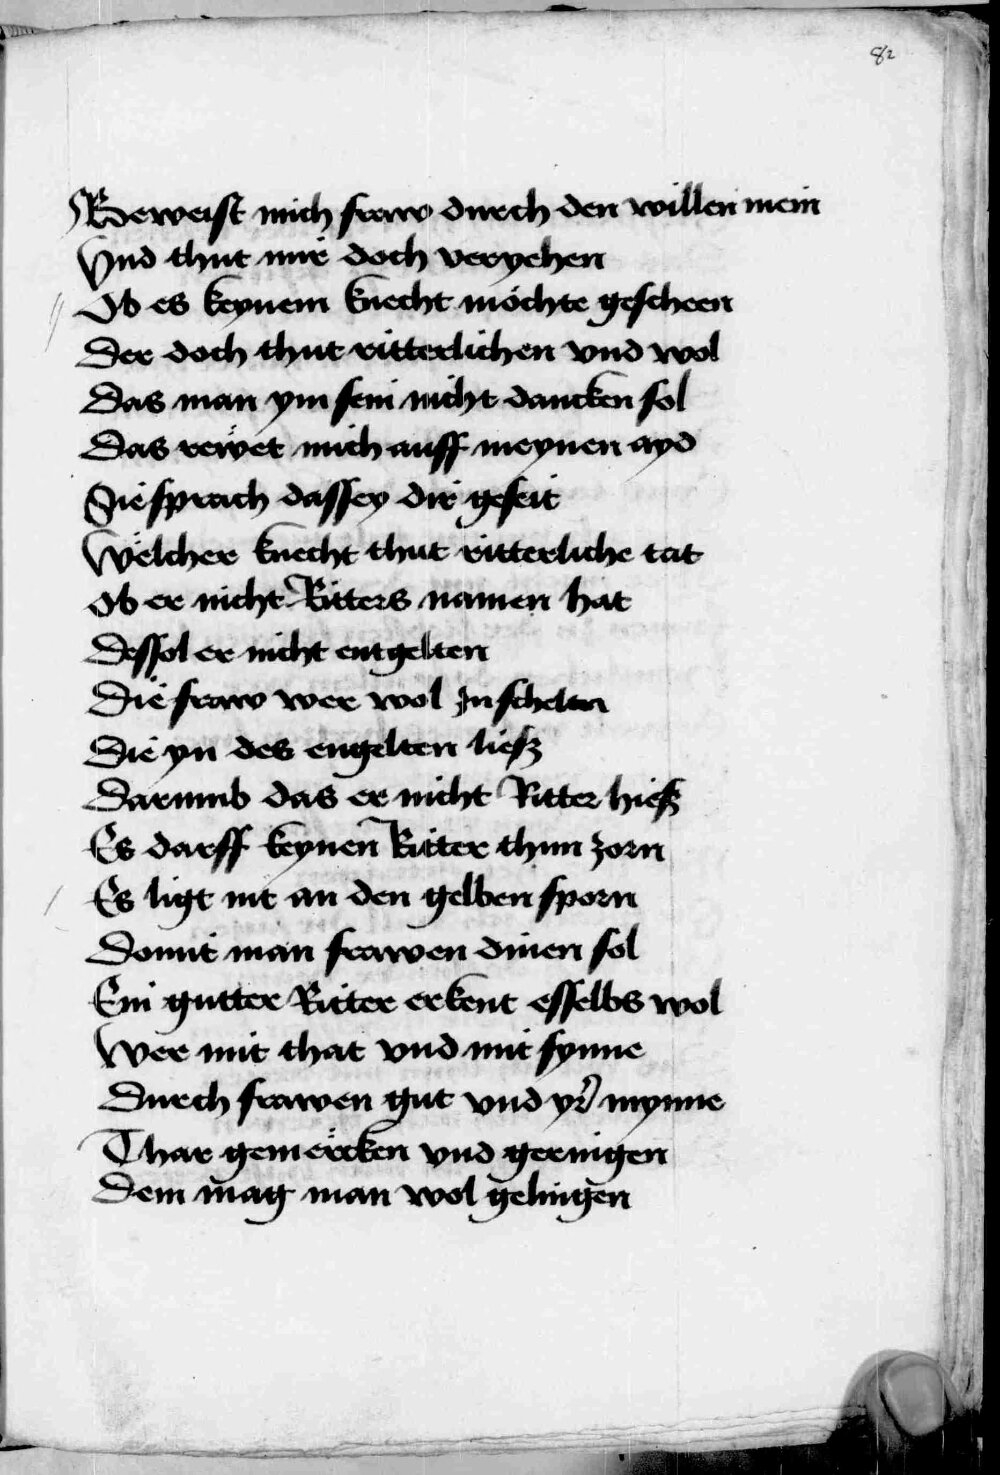 82
Beweist mich fraw durch den willen mein
Vnd thut mir doch veryehen
Ob es keynem knecht möchte gescheen
Der doch thut ritterlichen vnd wol
Das man ym sein nicht dancken sol
Das rewet mich auff meynen ayd
Sie sprach das sey dir geseit
Welcher knecht thut ritterliche tat
Ob er nicht Ritters namen hat
Des sol er nicht entgelten
Die fraw wer wol zu schelten
Die yn des engelten ließ
Darumb das er nicht Ritter hieß
Es darff keynen Ritter thun zorn
Es ligt nit an den gelben sporn
Domit man frawen dinen sol
Ein gutter Ritter erkent es selbs wol
Wer mit that vnd mit synne
Durch frawen gut vnd yr mynne
Thar gemercken vnd geringen
Dem mag man wol gelingen